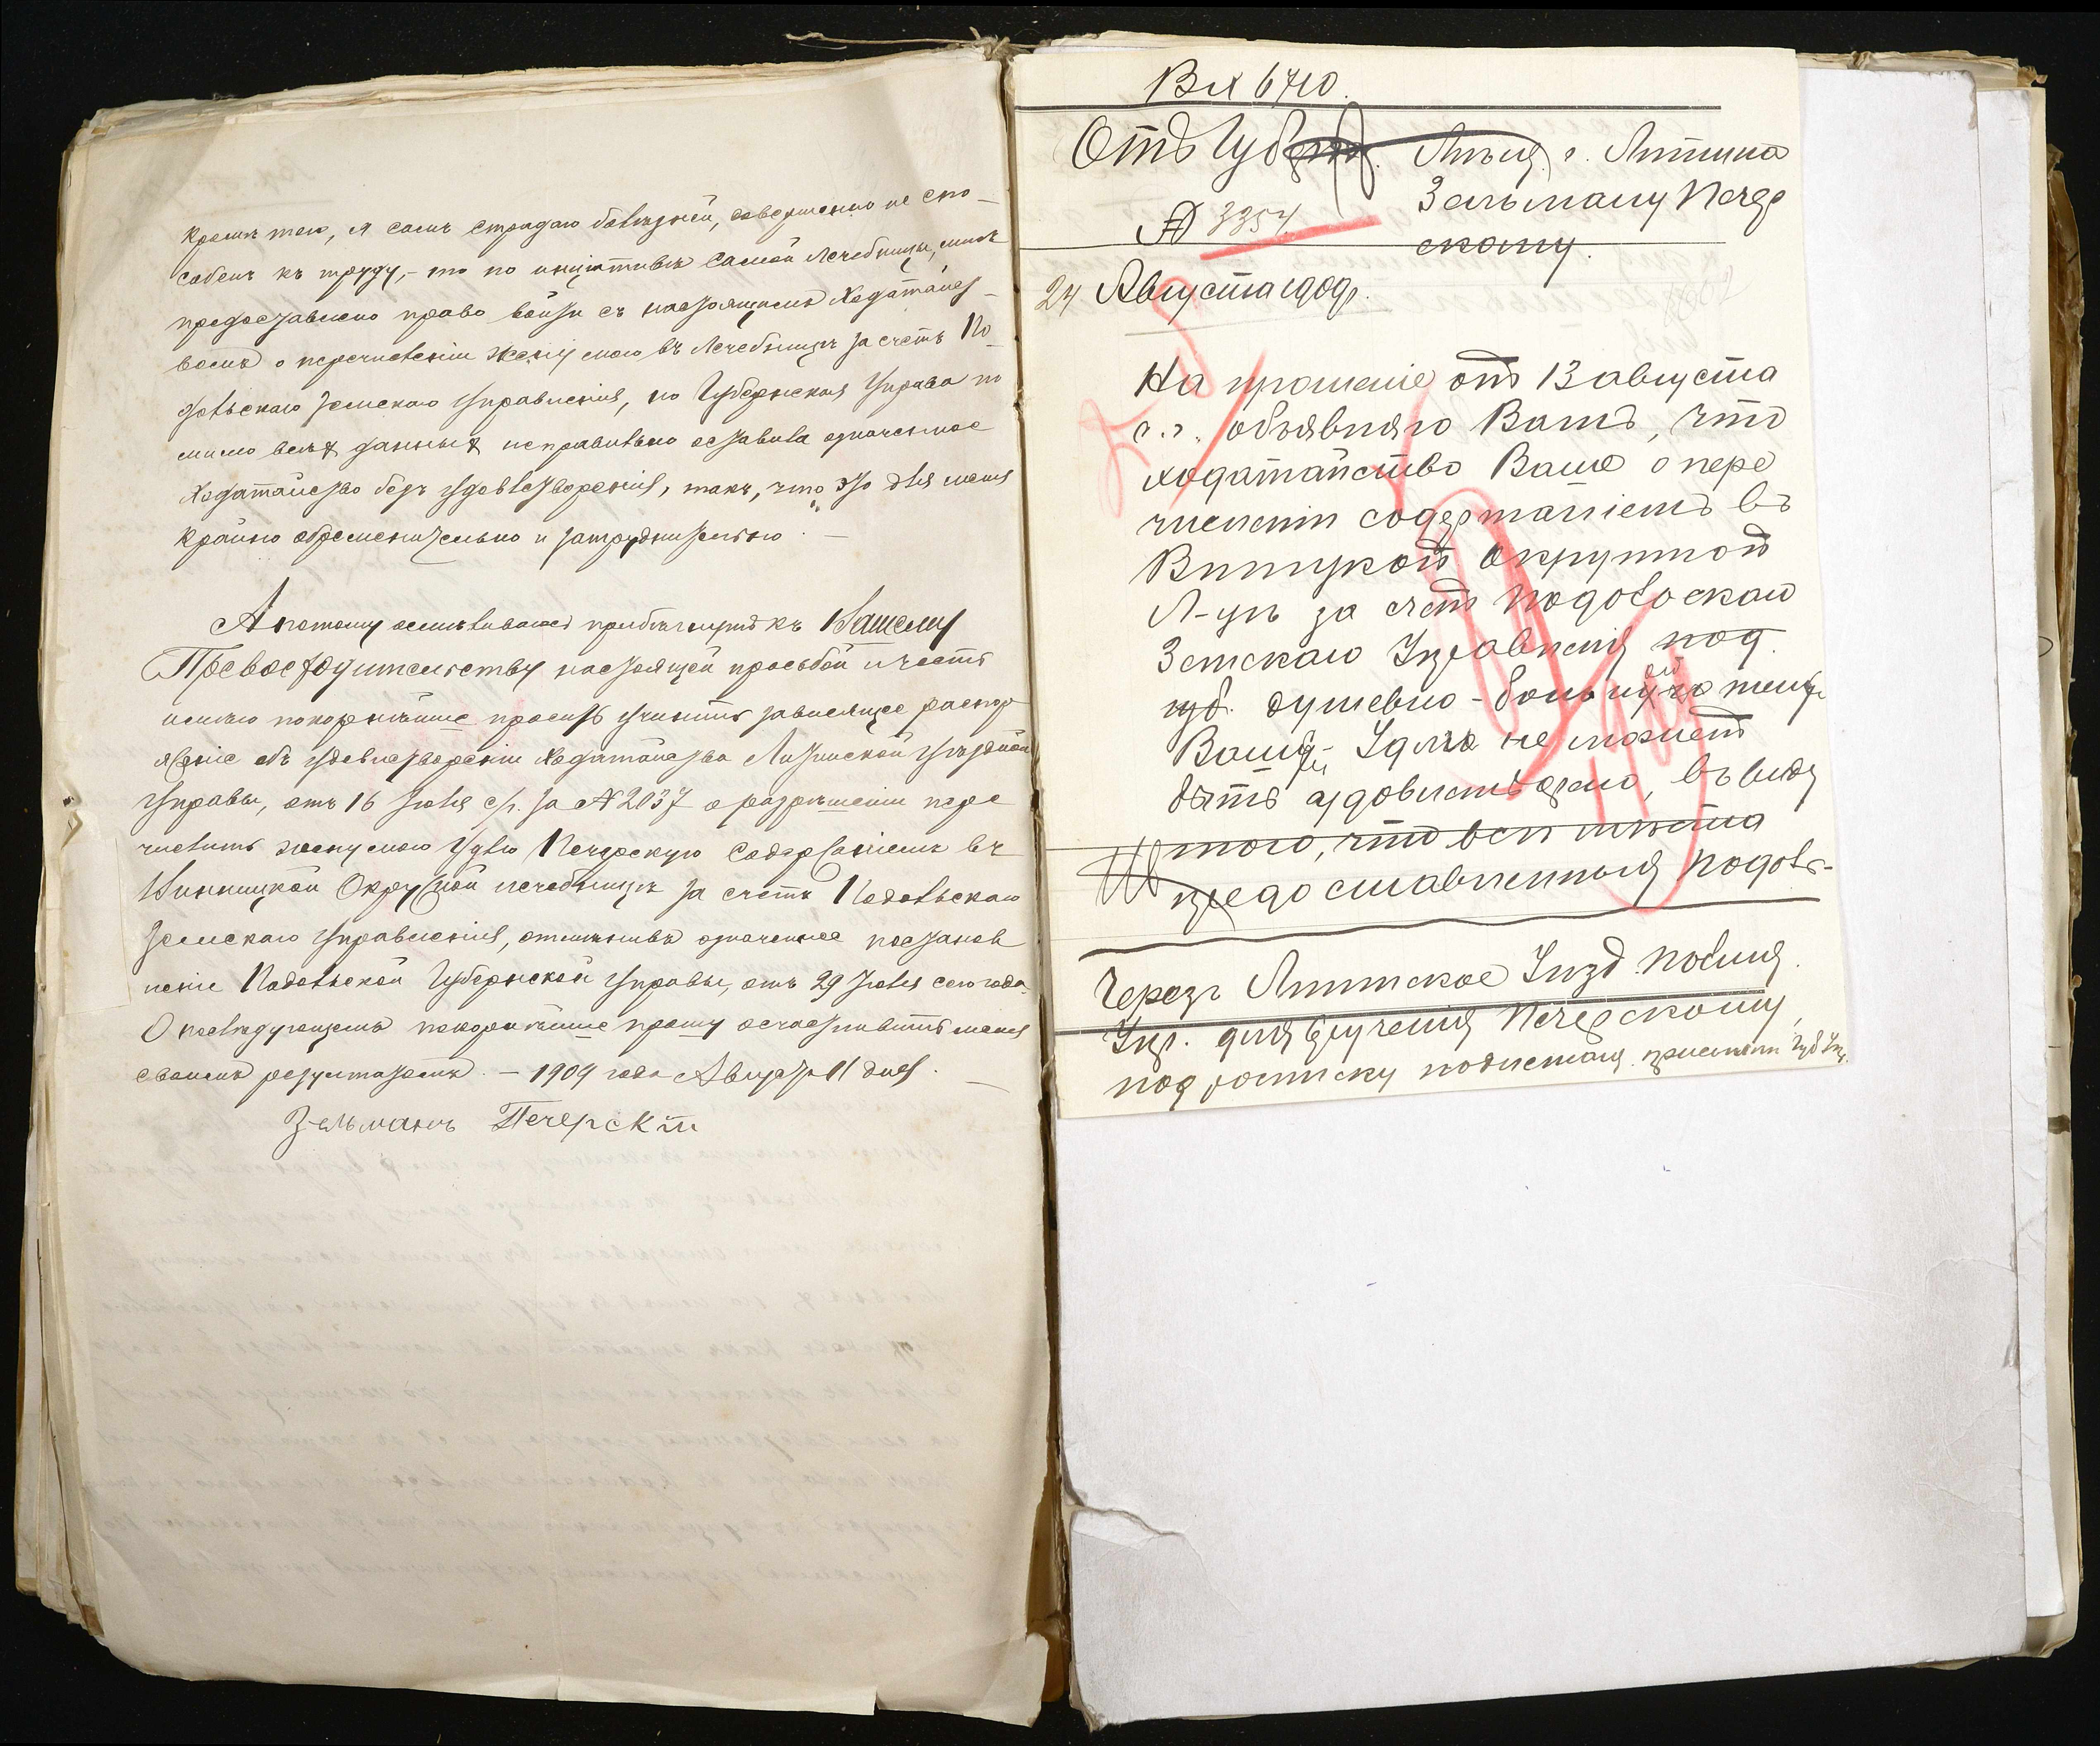 Кромѣ того, я самъ страдаю болѣзней, совершенно не спо-
собенъ къ труду, - то по иниціативѣ самой Лечебницы, мнѣ
предоставлено право войти съ настоящимъ Ходатайст-
вомъ о перечисленіи жены моей въ Лечебницѣ за счетъ По-
дольскаго земскаго управленія, но Губернская Управа по
мимо всѣхъ данныхъ неправильно оставила означенное
Ходатайство безъ удовлетворенія, такъ, что это для меня
крайно обременительно и затруднительно. —
А потому осмѣливаюсь прибѣгнуть къ Вашему
Превосходительству настоящей просьбой и честь
имѣю покорнѣйше просить учинить зависящее распор
яженіе объ удовлетвореніи Ходатайства Литинской уѣздной
Управы, отъ 16 Іюля с/г. за № 2037 о разрѣшеніи пере
числить жену мою Удлю Печерскую Содержаніемъ въ
Винницкой Окружной лечебницѣ за счетъ Подольскаго
Земскаго Управленія, отмѣнивъ означенное постанов
леніе Подольской Губернской Управы, отъ 29 Іюля сего года.
О послѣдующемъ покорнѣйше прошу осчастливить меня
своимъ результатомъ. — 1909 года Августа 11 дня. —
Зельманъ Печерскій
Вх 6710.
Отъ Губ. Жит. г. Литина
Зельману Печер
№ 3354 скому.
24 Августа 1909 г.
На прошеніе отъ 13 августа
с. г. объявляю Вамъ, что
ходатайство Ваше о пере
численіи содержаніемъ въ
Винницкой Окружной
Л-цѣ за счетъ Подольскаго
Земскаго Управленія под.
губ. душевно-больной жены
Вашей Удли не можетъ
быть удовлетворено, въ виду
того, что всѣ мѣста
предоставленныя Подоль-
Черезъ Литинское Уѣзд. Полиц.
Упр. для врученія Печерскому,
под росписку